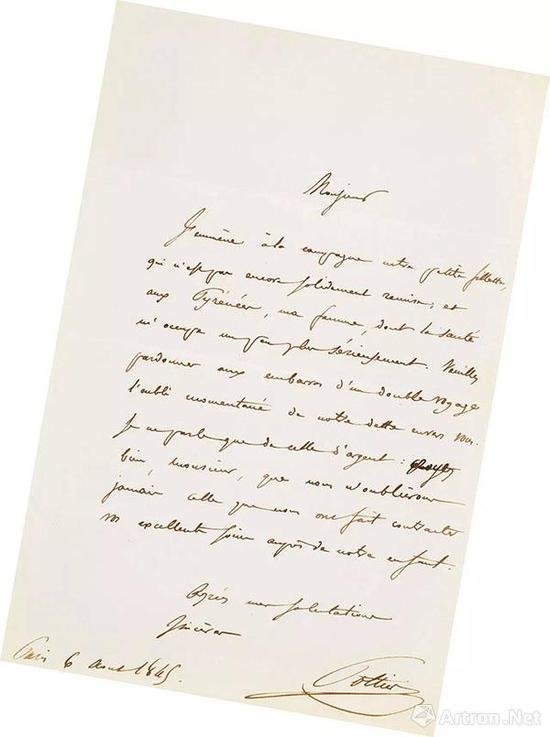 Monsieur
J'emmène à la campagne notre petite fillette,
qui n'est pas encore solidement remise; et
aux Pyrénées, ma femme, dont la santé
m'occupe un peu plus sérieusement. Veuillez
pardonner aux embarras d'un double voyage
l'oubli momentané de notre dette envers vous.
Je ne parle que de celle d'argent: croyez
bien, monsieur, que nous n'oublierons
jamais celle que nous ont fait contracter
vos excellents soins auprès de notre enfant.
Agréez mes salutations
sincères
Paris 6 aout 1845.
Pottier
Artron.Net